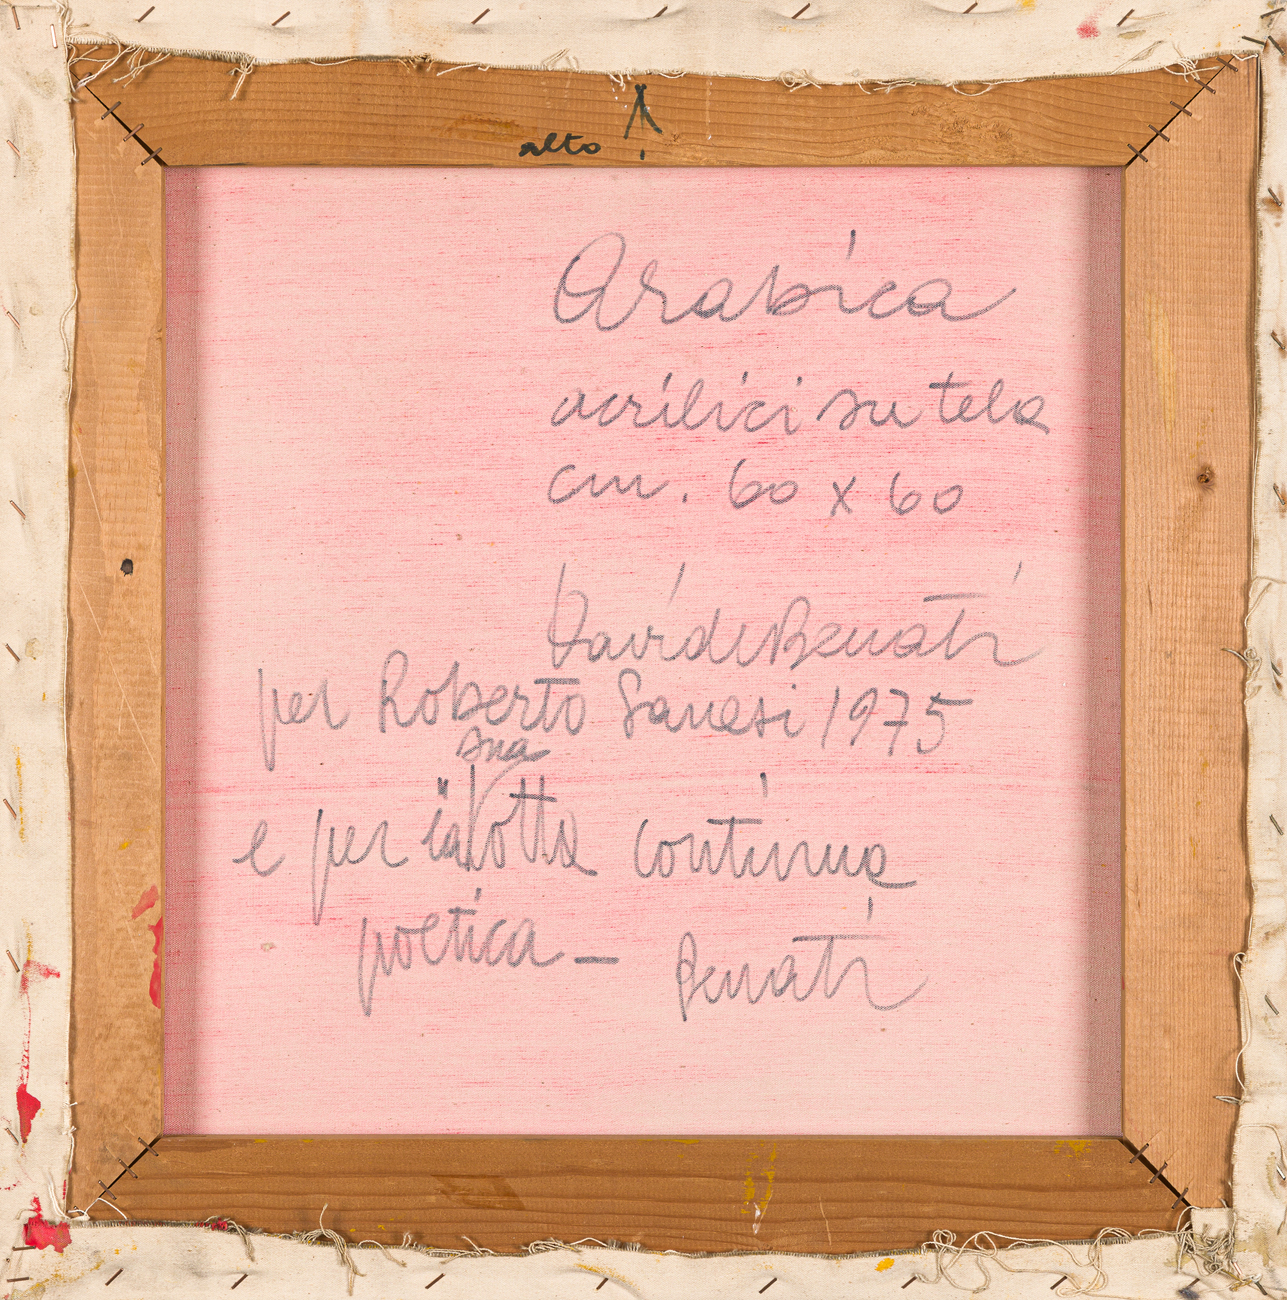 alto
Arabica
acrilici su tela
cm. 60 x 60
Davide Benati
per Roberto Sanesi 1975
sua
e per la lotta continua
poetica — Benati